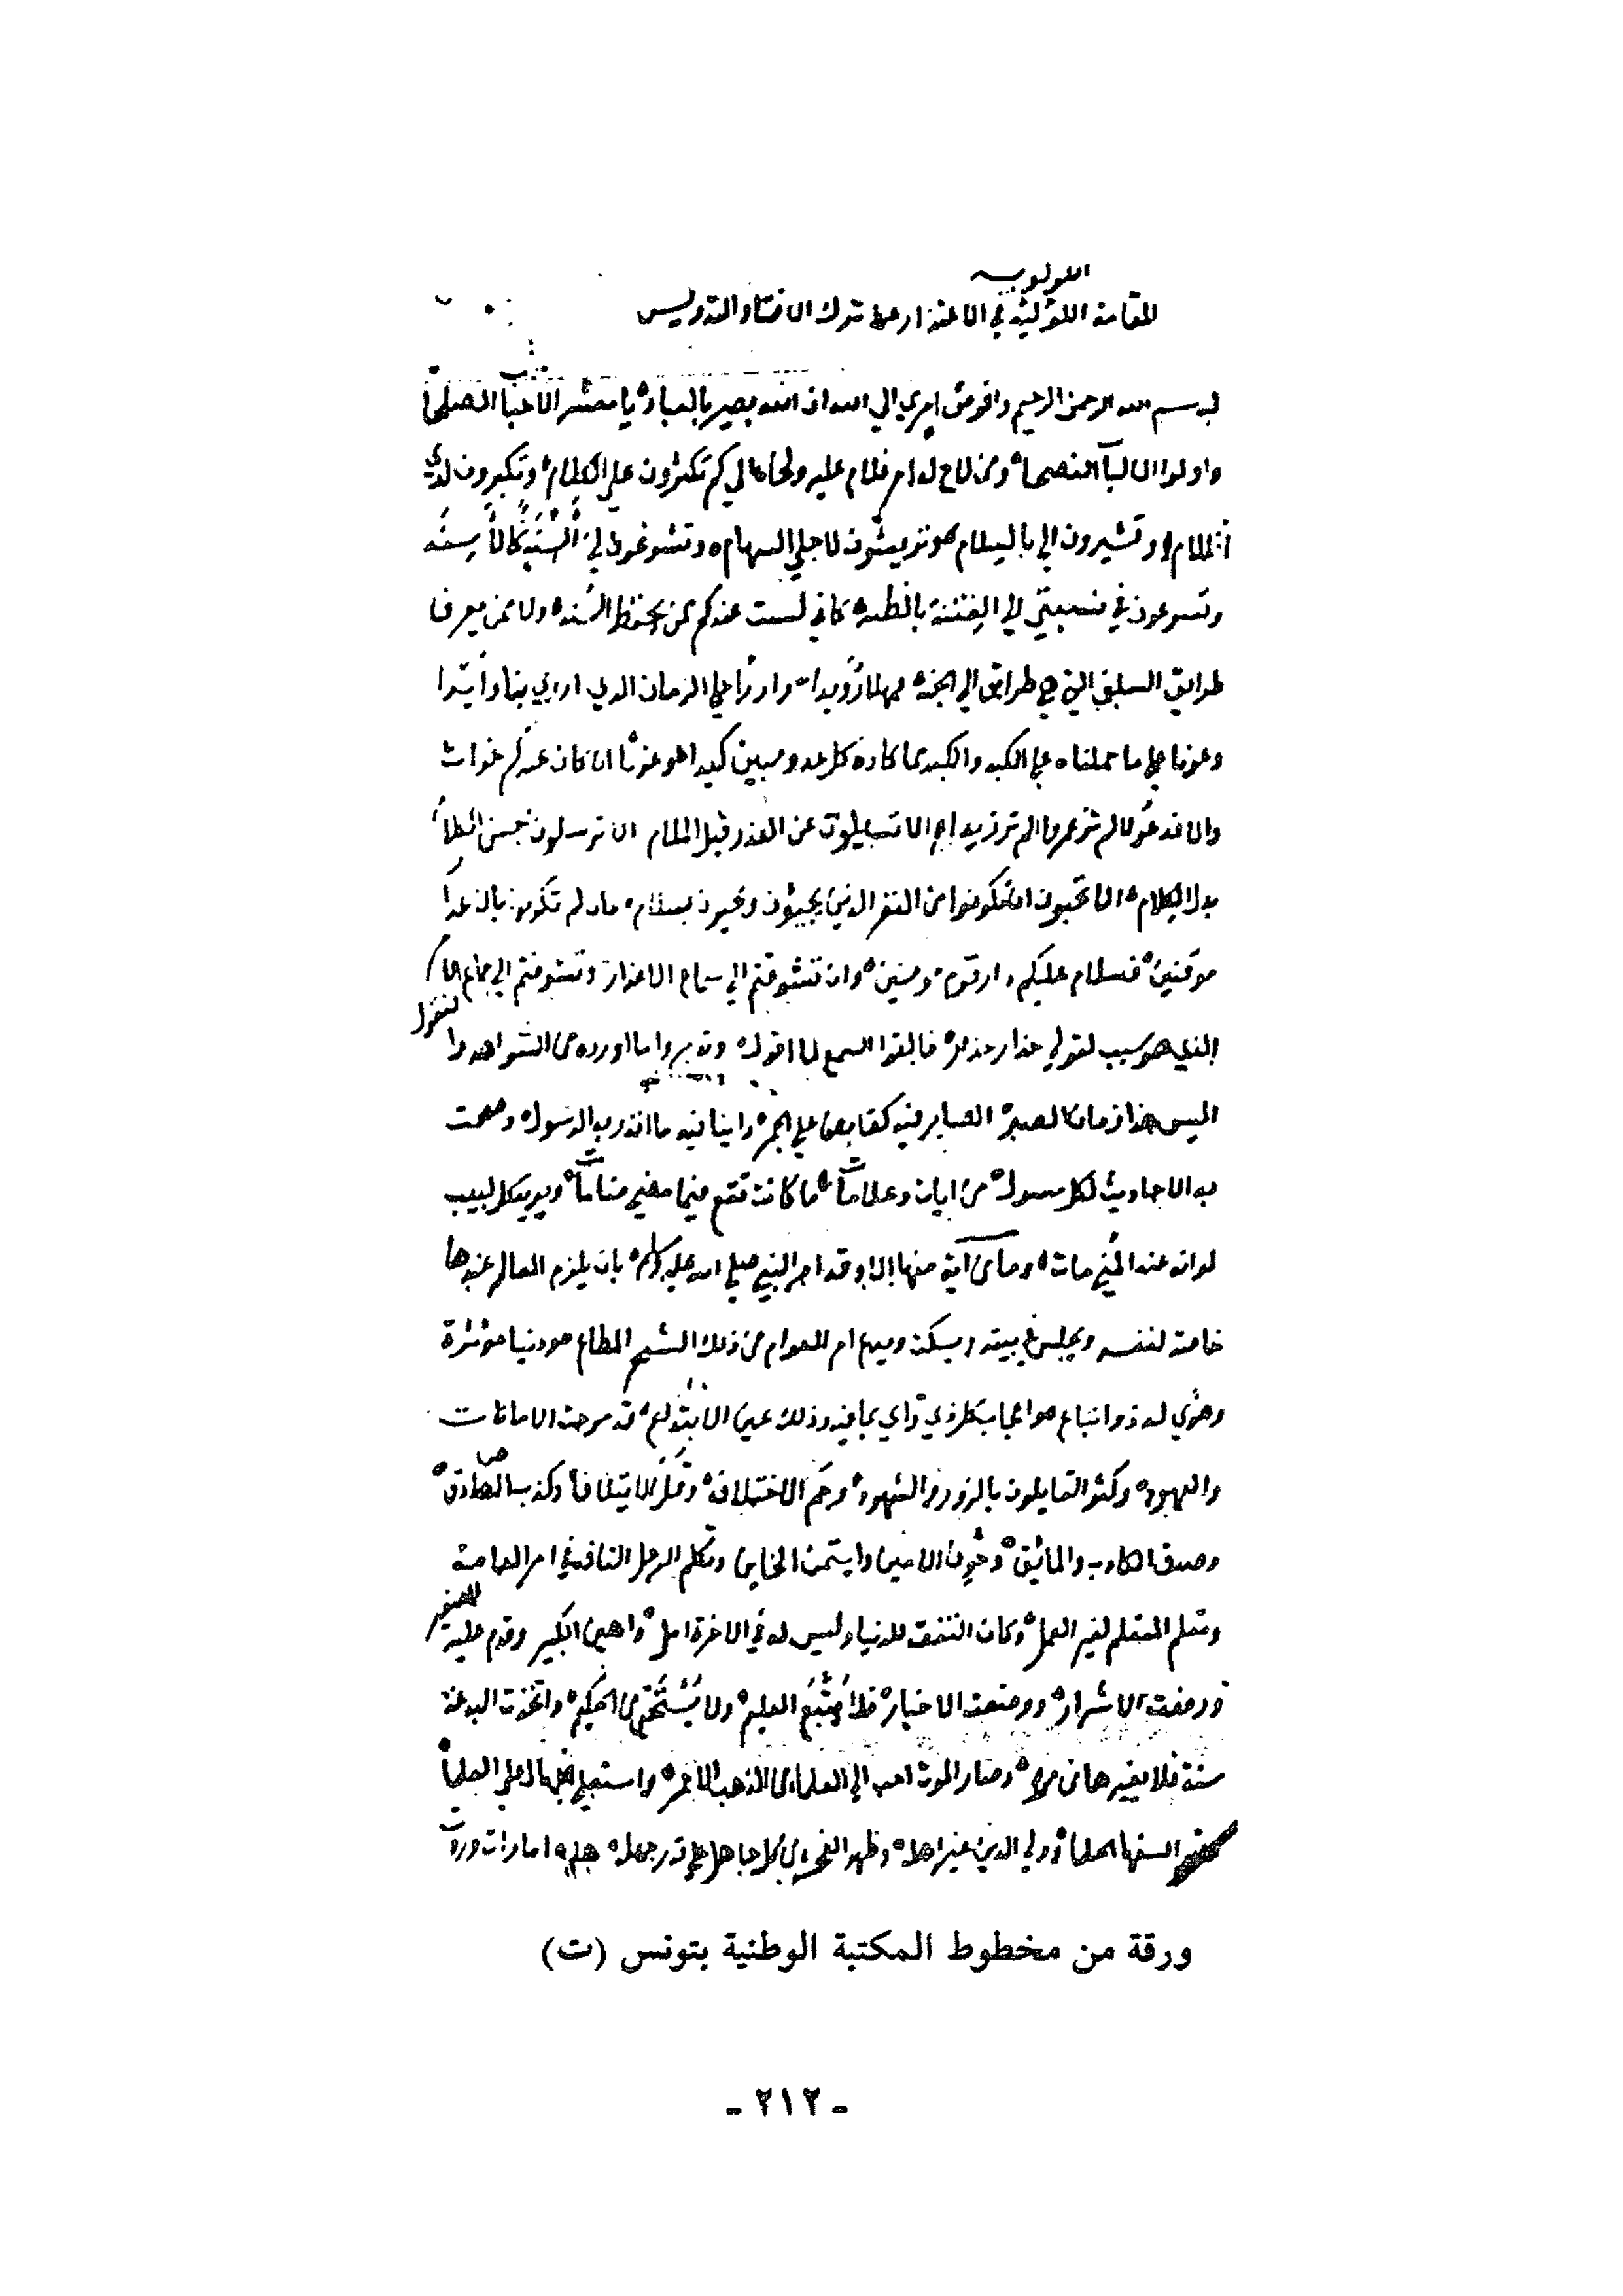 اللولويه
المقامة اللؤلؤية في الاعتذار على ترك الافتاء والتدريس
بسم الله الرحمن الرحيم وافوض امري الي الله ان الله بصير بالعباد يا معشر الاحبا الصلحا
واولوا الالبا النصحا ومن لاح له امر فلام عليه ولحا مالي كم تكثرون علي الكلام وتكبرون لدي
الملام وتشيرون الي بالسلام وتريشون لاجلي السهام وتشرعون لي السنة كالاسنه
وتسرعون في نسبتي الي الفتنة بالظنه كاني لست عندكم ممن يحفظ السنه ولا ممن يعرف
طرايق السلف التي هي طرايق الي الجنه مهلا رويدا
وعونا علي ما حملناه علي الكبد والكبد مما كاده كل عدو مبين كيدا هو عونا ان كان عندكم غواث
والا فدعونا لم الا تسايلون عن العذر قبل الملام الا ترسلون حسن الكلا
بدل الكلام الا تحبون ان تكونوا من النفر الذين يجيبون ويحيون بسلام فان لم تكونوا بالاعذا
موقنين فسلام عليكم دار قوم مومنين وان تشوقتم الي سماع الاعذار وتشوفتم الي جماع الا
الذي هو سبب لقولي حذار حذار فالقوا السمع لما اقول وتدبروا ما اورده من الشواهد وا
لنقول
اليس هذا زمان الصبر الصابر فيه كقابض علي الجمر راينا فيه ما انذر به الرسول وصحت
به الاحاديث لكل سول من ايات وعلامات ما كانت تقع فيما مضي مناما ويريبكل لبيب
لو انه عند المنى مات وما من آية منها الا وقد امر النبي صلى الله عليه وسلم بان يلزم العالم عندها
خاصة لنفسه ويجلس في بيته ويسكت ويدع امر العوام من ذلك الشح المطاع هو دنيا موثرة
وهوي له ذو اتباع هو اعجاب كل ذي راي بما فيه وذلك عين الابتداع قد مرجت الامانات
والعهود وكثر القايلون بالزور والشهود وحم الاختلاف وقل الايتلاف وكذب الصادق
وصدق الكاذب والمايق وخون الامين وايتمن الخاين وتكلم الرجل التافه في امر العامة
وتعلم المتعلم لغير العمل وكان التفقه للدنيا وليس له في الاخرة امل واهين الكبير وقدم عليه
الصغير
ورفعت الاشرار ووضعت الاخيار فلا يتبع العليم ولا يستحي من الحكيم واتخذت البدعة
سنة فلا يغيرها من مره وصار الموت احب الي العلماء من الذهب الاحمر واستعلي الجهال علي العلما
السفها الحلما وولي الدين غير اهله وظهر الفحش من كل جاهل علي قدر جهله هذه امارات وردت
ورقة من مخطوط المكتبة الوطنية بتونس (ت)
- ٢١٢ -